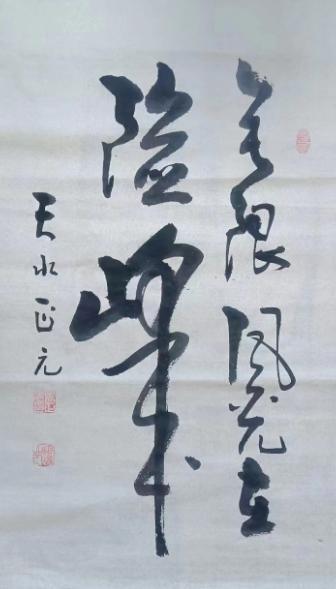 无限风光在
險峰
天水正元